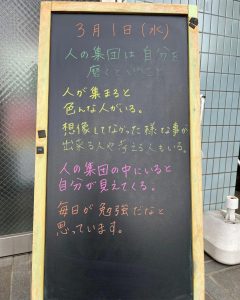 3月1日(水)
人の集団は自分を
磨くということ
人が集まると
色んな人がいる。
想像してなかった様な事が
出来る人や考える人もいる。
人の集団の中にいると
自分が見えてくる。
毎日が勉強だなと
思っています。